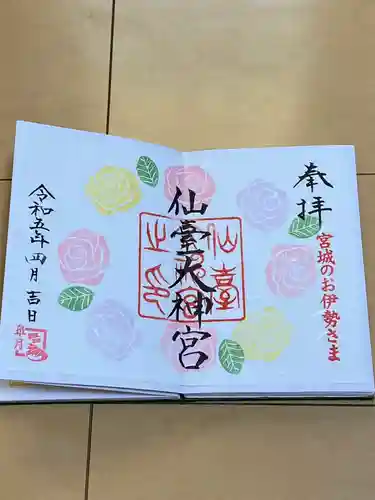 奉拝
宮城のお伊勢さま
仙臺大神宮
令和五年四月吉日
皐月